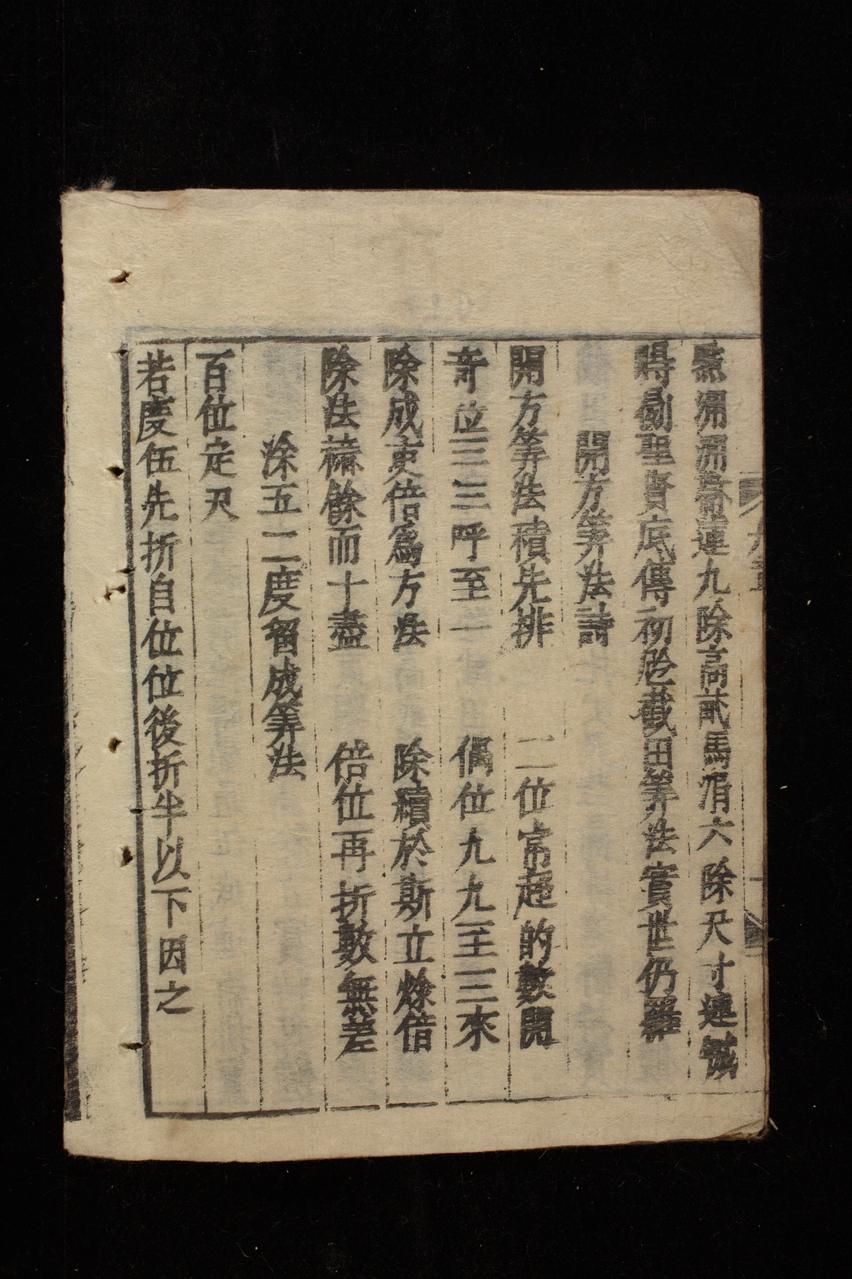 九除高貳馬涓六除尺寸連
聖賢底傳初截田筭法實世仍
開方筭法詩
開方筭法積先排 二位常超的數開
奇位三三呼至一 偶位九九至三來
除成吏倍爲方法 除積於斯立倍
除法積餘而十盡 倍位再折數無差
涂五二度習成筭法
百位定尺
若度伍先折自位位後折半以下因之